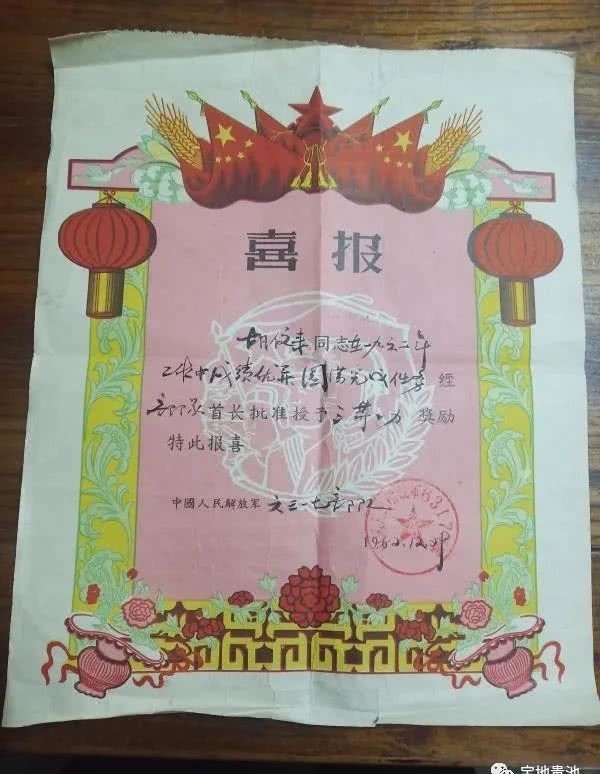 喜报
胡 来同志在一九六二年
工作中成绩优异圆满完成任务经
部队首长批准授予三等功奖励
特此报喜
中國人民解放军 六三一七部队
1962.12.
宝地贵池